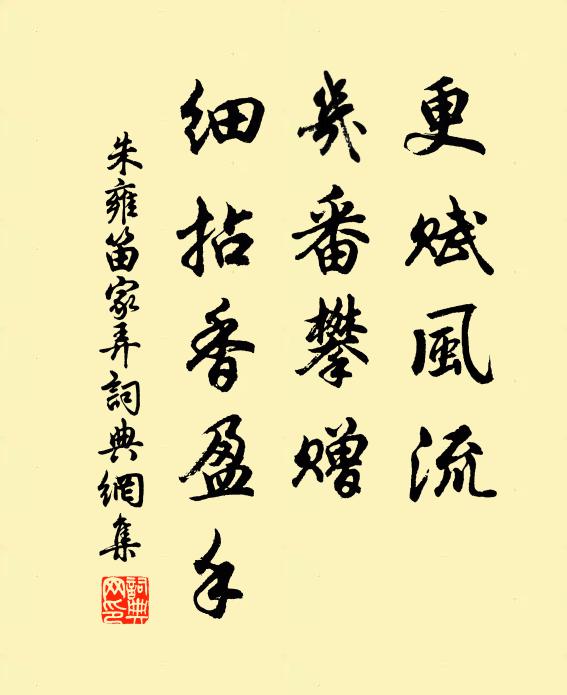 更赋風流
幾番攀贈
细拈香盈手
朱雍笛家弄詞典網集
詞典网印